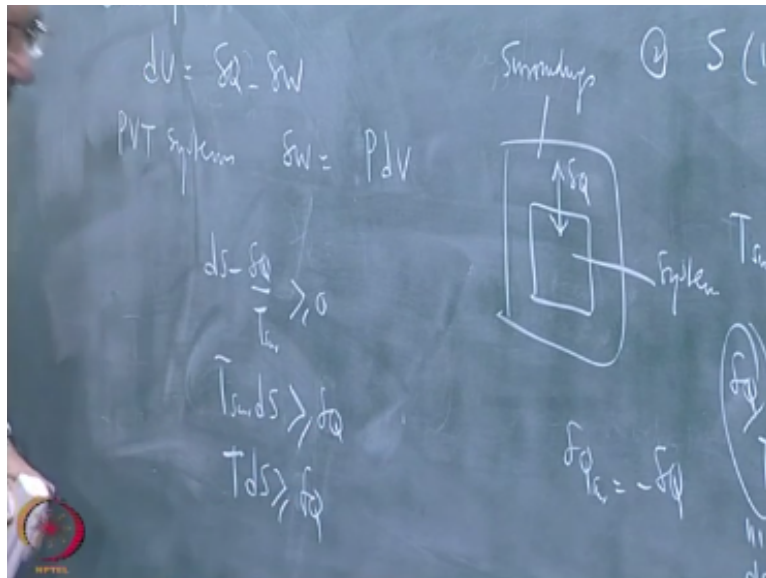 dU = δQ - δW
PVT systems δW = PdV
dS - δQ/T_sur ≥ 0
T_sur dS ≥ δQ
TdS ≥ δQ
Surroundings
δQ
System
δQ = -δQ
② S (
T
δQ
NPTEL